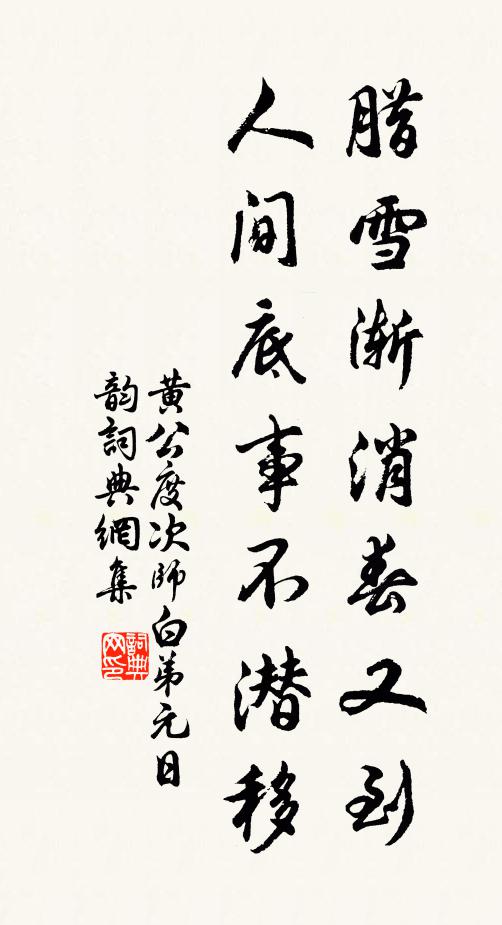 腊雪渐消春又到
人间底事不潜移
黄公度次師白弟元日
韵詞典網集
詞典网印